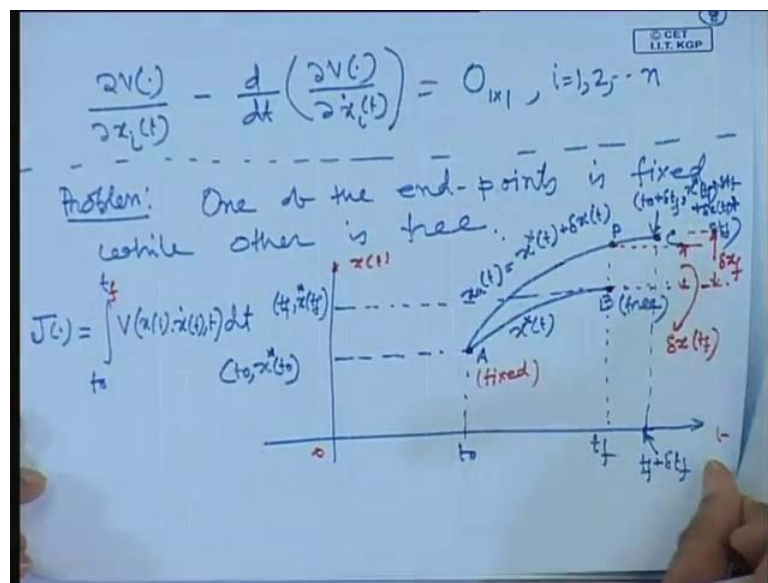 8
© CET
I.I.T. KGP
∂V(·)/∂x_i(t) - d/dt (∂V(·)/∂ẋ_i(t)) = 0_{1×1}, i=1,2,-- n
Problem: One of the end-points is fixed
while other is free.
J(·) = ∫_{t0}^{tf} V(x(t), ẋ(t), t) dt
x(t)
(tf, x*(tf))
(t0, x*(t0))
xa(t) = x*(t) + δx(t)
x*(t)
A
(fixed)
P
C
B (free)
δxf
δx(tf)
0
t0
tf
tf+δtf
t